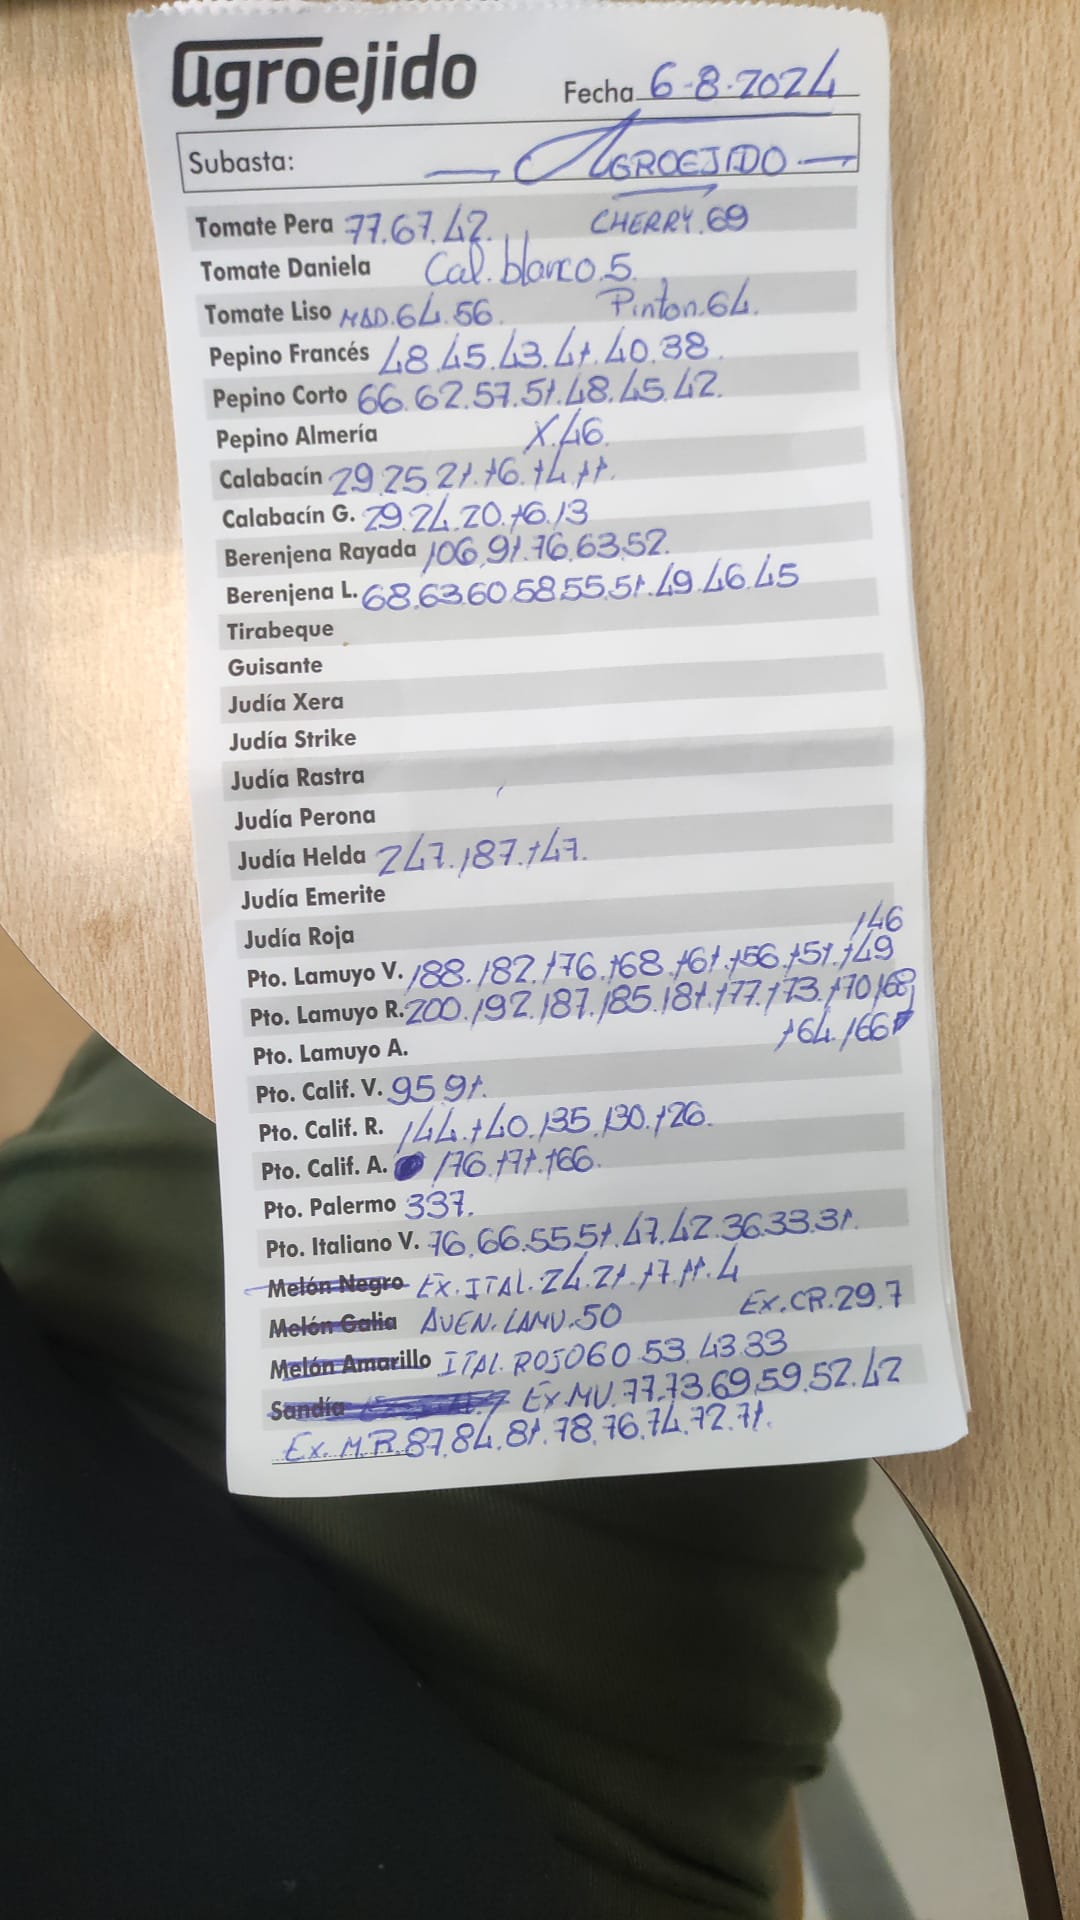 agroejido
Fecha 6-8-2024
Subasta: AGROEJIDO
Tomate Pera 77.67.42. CHERRY.69
Tomate Daniela Cal.blanco.5.
Tomate Liso MAD.64.56. Pinton.64.
Pepino Francés 48.45.43.41.40.38.
Pepino Corto 66.62.57.51.48.45.42.
Pepino Almería X.46.
Calabacín 29.25.21.16.14.11.
Calabacín G. 29.24.20.16.13
Berenjena Rayada 106.91.76.63.52.
Berenjena L. 68.63.60.58.55.51.49.46.45
Tirabeque
Guisante
Judía Xera
Judía Strike
Judía Rastra
Judía Perona
Judía Helda 247.187.147.
Judía Emerite
Judía Roja
146
Pto. Lamuyo V. 188.182.176.168.161.156.151.149
Pto. Lamuyo R. 200.192.187.185.181.177.173.170.168
164.166
Pto. Lamuyo A.
Pto. Calif. V. 95.91.
Pto. Calif. R. 144.140.135.130.126.
Pto. Calif. A. 176.171.166.
Pto. Palermo 337.
Pto. Italiano V. 76.66.55.51.47.42.36.33.31.
Melón Negro EX.ITAL.24.21.17.11.4
Melón Galia AVEN.LAMU.50 EX.CR.29.7
Melón Amarillo ITAL.ROJO60.53.43.33
Sandía EX.MV.77.73.69.59.52.42
Ex.M.R.87.84.81.78.76.74.72.71.